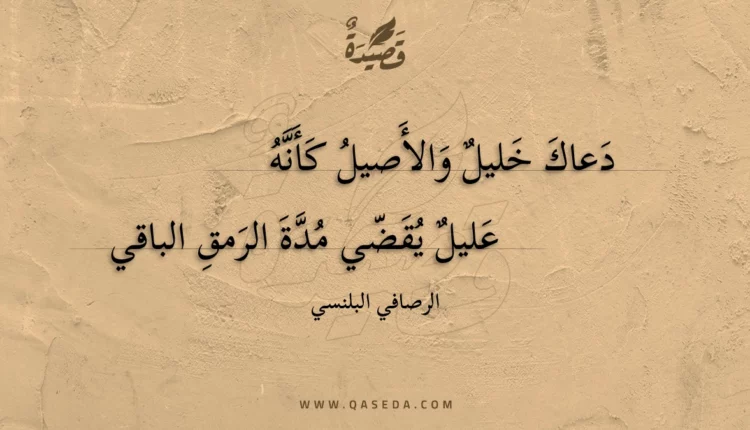 قَصيدَةٌ
دَعاكَ خَليلٌ وَالأَصيلُ كَأَنَّهُ
عَليلٌ يُقَضّي مُدَّةَ الرَمقِ الباقي
الرصافي البلنسي
WWW.QASEDA.COM